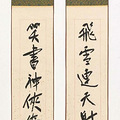 飛雪連天射
笑書神俠倚